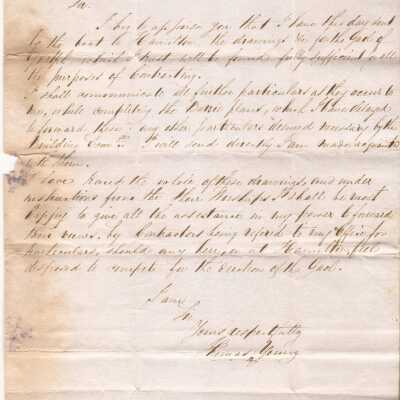 Sir.
I beg to apprise you that I have this day sent
by the boat to Hamilton the drawings &c for the Gaol of
which I trust will be found fully sufficient for all
the purposes of Contracting.
I shall communicate all further particulars as they occur to
me, while completing the plans, which I have delayed
to forward, then any other particulars deemed necessary by the
Building I will send directly I am made acquainted
with them.
I have the of these drawings, and under
instructions from the Worships I shall be most
happy to give all the assistance in my power to forward
their views, by Contractors being referred to my Office for
particulars, should any here, or at Hamilton feel
disposed to compete for the Erection of the Gaol.
I am
Sir
Yours respectfully
Thomas Young